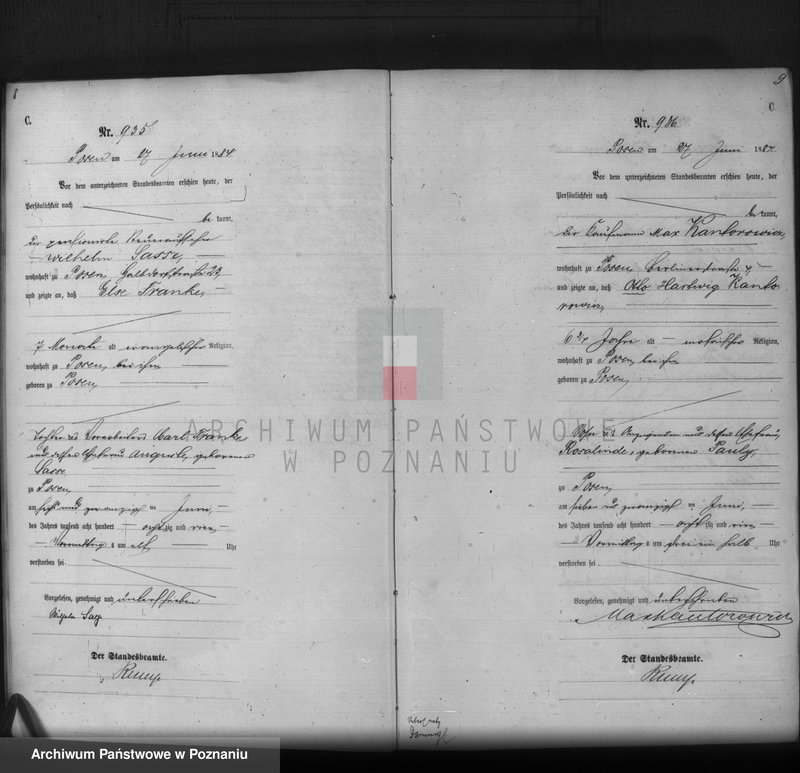 8
C.
Nr. 935
Posen am 27 Juni 1884
Vor dem unterzeichneten Standesbeamten erschien heute, der
Persönlichkeit nach
be kannt,
der pensionirte Steueraufseher
Wilhelm Sasse,
wohnhaft zu Posen,
und zeigte an, daß Else Franke,
7 Monate alt evangelischer Religion,
wohnhaft zu Posen, bei ihm
geboren zu Posen,
Tochter des Vorarbeiters Karl Franke
und dessen Ehefrau Auguste, geborenen
Sasse
zu Posen,
am sechs und zwanzigsten Juni,
des Jahres tausend acht hundert acht zig und vier
Vormittags um elf Uhr
verstorben sei.
Vorgelesen, genehmigt und unterschrieben
Wilhelm Sasse
Der Standesbeamte.
9
C
Nr. 936
Posen am 27 Juni 1884
Vor dem unterzeichneten Standesbeamten erschien heute, der
Persönlichkeit nach
be kannt,
der Kaufmann Max Kantorowicz,
wohnhaft zu Posen, Berlinerstraße 4
und zeigte an, daß Otto Hartwig Kanto
rowicz,
6 3/4 Jahre alt mosaischer Religion,
wohnhaft zu Posen, bei ihm
geboren zu Posen,
Sohn des Anzeigenden und dessen Ehefrau,
Rosalinde, geborenen Pauly,
zu Posen
am sieben und zwanzigsten Juni,
des Jahres tausend acht hundert acht zig und vier
Vormittags um drei ein halb Uhr
verstorben sei.
Vorgelesen, genehmigt und unterschrieben
Max Kantorowicz
Der Standesbeamte.
ARCHIWUM PAŃSTWOWE
W POZNANIU
Archiwum Państwowe w Poznaniu